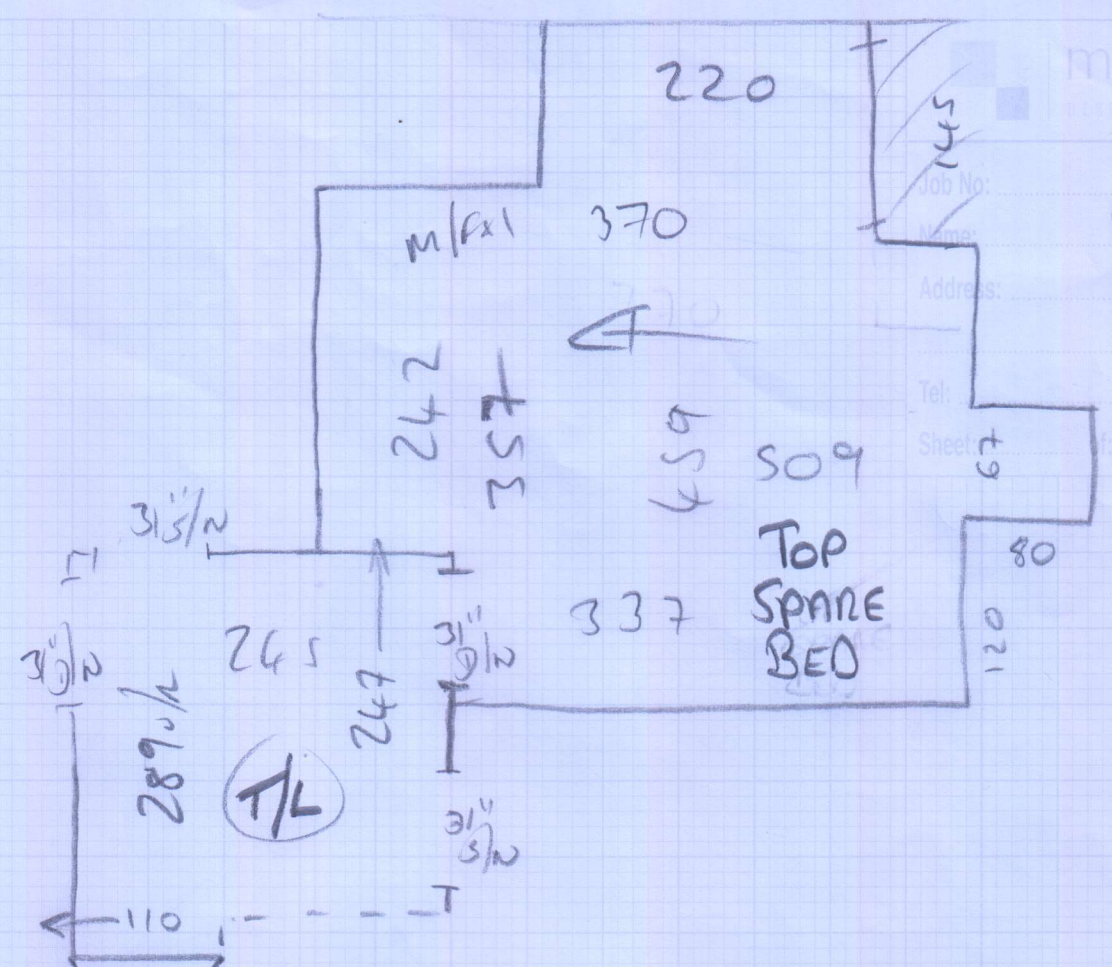 220
145
Job No:
Name:
Address:
Tel:
Sheet:
of:
M/Fx1
370
242
357
459
509
67
80
TOP
SPARE
BED
337
120
31" S/N
31"
245
247
289
T/L
31"
S/N
110